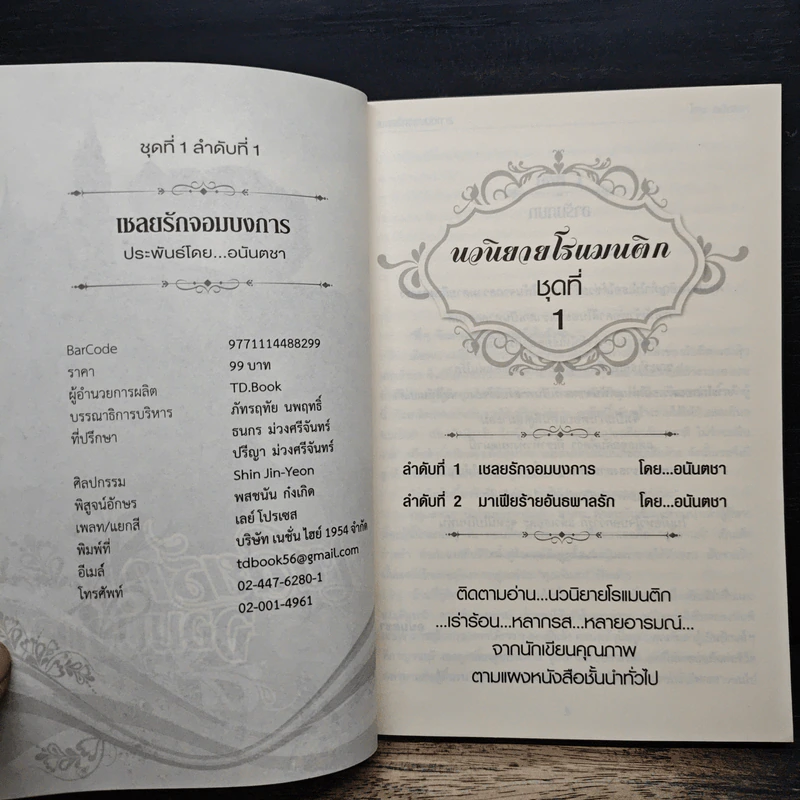 ชุดที่ 1 ลำดับที่ 1
เชลยรักจอมบงการ
ประพันธ์โดย...อนันตชา
BarCode 9771114488299
ราคา 99 บาท
ผู้อำนวยการผลิต TD.Book
บรรณาธิการบริหาร ภัทรฤทัย นพฤทธิ์
ที่ปรึกษา ธนกร ม่วงศรีจันทร์
ปรีญา ม่วงศรีจันทร์
ศิลปกรรม Shin Jin-Yeon
พิสูจน์อักษร พสชนัน กังเกิด
เพลท/แยกสี เลย์ โปรเซส
พิมพ์ที่ บริษัท เนชั่น ไฮย์ 1954 จำกัด
อีเมล์ tdbook56@gmail.com
โทรศัพท์ 02-447-6280-1
02-001-4961
นวนิยายโรแมนติก
ชุดที่
1
ลำดับที่ 1 เชลยรักจอมบงการ โดย...อนันตชา
ลำดับที่ 2 มาเฟียร้ายอันธพาลรัก โดย...อนันตชา
ติดตามอ่าน...นวนิยายโรแมนติก
...เร่าร้อน...หลากรส...หลายอารมณ์...
จากนักเขียนคุณภาพ
ตามแผงหนังสือชั้นนำทั่วไป